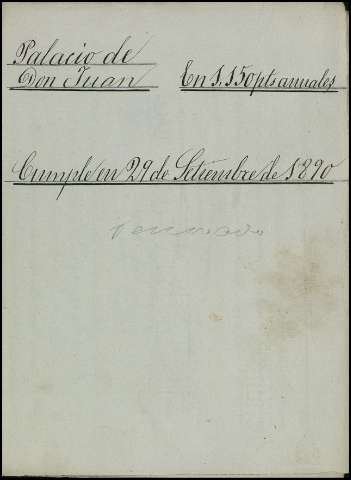 Palacio de
Don Juan En 1,150 pts anuales
Cumple en 29 de Setiembre de 1890